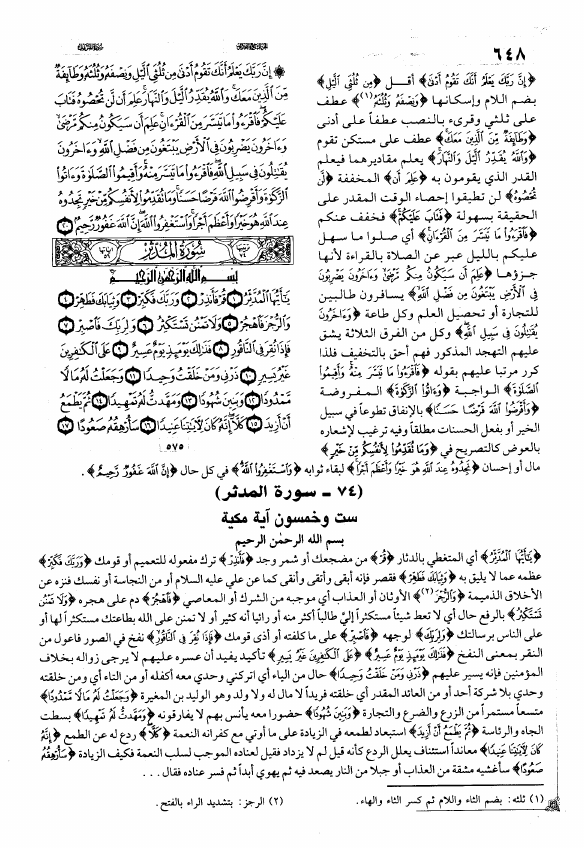 ٦٤٨
﴿إِنَّ رَبَّكَ يَعْلَمُ أَنَّكَ تَقُومُ أَدْنَىٰ﴾ أقل ﴿مِن ثُلُثَيِ ٱلَّيْلِ﴾
بضم اللام وإسكانها ﴿وَنِصْفَهُۥ وَثُلُثَهُۥ﴾(١) عطف
على ثلثي وقرىء بالنصب عطفاً على أدنى
﴿وَطَآئِفَةٌ مِّنَ ٱلَّذِينَ مَعَكَ﴾ عطف على مستكن تقوم
﴿وَٱللَّهُ يُقَدِّرُ ٱلَّيْلَ وَٱلنَّهَارَ﴾ يعلم مقاديرهما فيعلم
القدر الذي يقومون به ﴿عَلِمَ أَن﴾ المخففة ﴿لَّن
تُحْصُوهُ﴾ لن تطيقوا إحصاء الوقت المقدر على
الحقيقة بسهولة ﴿فَتَابَ عَلَيْكُمْ﴾ فخفف عنكم
﴿فَٱقْرَءُوا۟ مَا تَيَسَّرَ مِنَ ٱلْقُرْءَانِ﴾ أي صلوا ما سهل
عليكم بالليل عبر عن الصلاة بالقراءة لأنها
جزؤها ﴿عَلِمَ أَن سَيَكُونُ مِنكُم مَّرْضَىٰ وَءَاخَرُونَ يَضْرِبُونَ
فِى ٱلْأَرْضِ يَبْتَغُونَ مِن فَضْلِ ٱللَّهِ﴾ يسافرون طالبين
للتجارة أو تحصيل العلم وكل طاعة ﴿وَءَاخَرُونَ
يُقَٰتِلُونَ فِى سَبِيلِ ٱللَّهِ﴾ وكل من الفرق الثلاثة يشق
عليهم التهجد المذكور فهم أحق بالتخفيف فلذا
كرر مرتبا عليهم بقوله ﴿فَٱقْرَءُوا۟ مَا تَيَسَّرَ مِنْهُ وَأَقِيمُوا۟
ٱلصَّلَوٰةَ﴾ الواجبة ﴿وَءَاتُوا۟ ٱلزَّكَوٰةَ﴾ المفروضة
﴿وَأَقْرِضُوا۟ ٱللَّهَ قَرْضًا حَسَنًا﴾ بالإنفاق تطوعاً في سبيل
الخير أو بفعل الحسنات مطلقاً وفيه ترغيب لإشعاره
بالعوض كالتصريح في ﴿وَمَا تُقَدِّمُوا۟ لِأَنفُسِكُم مِّنْ خَيْرٍ﴾
مال أو إحسان ﴿تَجِدُوهُ عِندَ ٱللَّهِ هُوَ خَيْرًا وَأَعْظَمَ أَجْرًا﴾ لبقاء ثوابه ﴿وَٱسْتَغْفِرُوا۟ ٱللَّهَ﴾ في كل حال ﴿إِنَّ ٱللَّهَ غَفُورٌ رَّحِيمٌ﴾.
۞ إِنَّ رَبَّكَ يَعْلَمُ أَنَّكَ تَقُومُ أَدْنَىٰ مِن ثُلُثَيِ ٱلَّيْلِ وَنِصْفَهُۥ وَثُلُثَهُۥ وَطَآئِفَةٌ
مِّنَ ٱلَّذِينَ مَعَكَ وَٱللَّهُ يُقَدِّرُ ٱلَّيْلَ وَٱلنَّهَارَ عَلِمَ أَن لَّن تُحْصُوهُ فَتَابَ
عَلَيْكُمْ فَٱقْرَءُوا۟ مَا تَيَسَّرَ مِنَ ٱلْقُرْءَانِ عَلِمَ أَن سَيَكُونُ مِنكُم مَّرْضَىٰ
وَءَاخَرُونَ يَضْرِبُونَ فِى ٱلْأَرْضِ يَبْتَغُونَ مِن فَضْلِ ٱللَّهِ وَءَاخَرُونَ
يُقَٰتِلُونَ فِى سَبِيلِ ٱللَّهِ فَٱقْرَءُوا۟ مَا تَيَسَّرَ مِنْهُ وَأَقِيمُوا۟ ٱلصَّلَوٰةَ وَءَاتُوا۟
ٱلزَّكَوٰةَ وَأَقْرِضُوا۟ ٱللَّهَ قَرْضًا حَسَنًا وَمَا تُقَدِّمُوا۟ لِأَنفُسِكُم مِّنْ خَيْرٍ تَجِدُوهُ
عِندَ ٱللَّهِ هُوَ خَيْرًا وَأَعْظَمَ أَجْرًا وَٱسْتَغْفِرُوا۟ ٱللَّهَ إِنَّ ٱللَّهَ غَفُورٌ رَّحِيمٌ ٢٠
سُورَةُ المُدَّثِّر
بِسْمِ ٱللَّهِ ٱلرَّحْمَٰنِ ٱلرَّحِيمِ
يَٰٓأَيُّهَا ٱلْمُدَّثِّرُ ١ قُمْ فَأَنذِرْ ٢ وَرَبَّكَ فَكَبِّرْ ٣ وَثِيَابَكَ فَطَهِّرْ ٤
وَٱلرُّجْزَ فَٱهْجُرْ ٥ وَلَا تَمْنُن تَسْتَكْثِرُ ٦ وَلِرَبِّكَ فَٱصْبِرْ ٧
فَإِذَا نُقِرَ فِى ٱلنَّاقُورِ ٨ فَذَٰلِكَ يَوْمَئِذٍ يَوْمٌ عَسِيرٌ ٩ عَلَى ٱلْكَٰفِرِينَ
غَيْرُ يَسِيرٍ ١٠ ذَرْنِى وَمَنْ خَلَقْتُ وَحِيدًا ١١ وَجَعَلْتُ لَهُۥ مَالًا
مَّمْدُودًا ١٢ وَبَنِينَ شُهُودًا ١٣ وَمَهَّدتُّ لَهُۥ تَمْهِيدًا ١٤ ثُمَّ يَطْمَعُ
أَنْ أَزِيدَ ١٥ كَلَّآ إِنَّهُۥ كَانَ لِءَايَٰتِنَا عَنِيدًا ١٦ سَأُرْهِقُهُۥ صَعُودًا ١٧
٥٧٥
(٧٤ - سورة المدثر)
ست وخمسون آية مكية
بسم الله الرحمٰن الرحيم
﴿يَٰٓأَيُّهَا ٱلْمُدَّثِّرُ﴾ أي المتغطي بالدثار ﴿قُمْ﴾ من مضجعك أو شمر وجد ﴿فَأَنذِرْ﴾ ترك مفعوله للتعميم أو قومك ﴿وَرَبَّكَ فَكَبِّرْ﴾
عظمه عما لا يليق به ﴿وَثِيَابَكَ فَطَهِّرْ﴾ فقصر فإنه أبقى وأنقى وأتقى كما عن علي عليه السلام أو من النجاسة أو نفسك فنزه عن
الأخلاق الذميمة ﴿وَٱلرُّجْزَ﴾(٢) الأوثان أو العذاب أي موجبه من الشرك أو المعاصي ﴿فَٱهْجُرْ﴾ دم على هجره ﴿وَلَا تَمْنُن
تَسْتَكْثِرُ﴾ بالرفع حال أي لا تعط شيئاً مستكثراً إليَّ طالباً أكثر منه أو رائيا أنه كثير أو لا تمنن على الله بطاعتك مستكثراً لها أو
على الناس برسالتك ﴿وَلِرَبِّكَ﴾ لوجهه ﴿فَٱصْبِرْ﴾ على ما كلفته أو أذى قومك ﴿فَإِذَا نُقِرَ فِى ٱلنَّاقُورِ﴾ نفخ في الصور فاعول من
النقر بمعنى النفخ ﴿فَذَٰلِكَ يَوْمَئِذٍ يَوْمٌ عَسِيرٌ﴾ ﴿عَلَى ٱلْكَٰفِرِينَ غَيْرُ يَسِيرٍ﴾ تأكيد يفيد أن عسره عليهم لا يرجى زواله بخلاف
المؤمنين فإنه يسير عليهم ﴿ذَرْنِى وَمَنْ خَلَقْتُ وَحِيدًا﴾ حال من الياء أي اتركني وحدي معه أكفله أو من التاء أي ومن خلقته
وحدي بلا شركة أحد أو من العائد المقدر أي خلقته فريداً لا مال له ولا ولد وهو الوليد بن المغيرة ﴿وَجَعَلْتُ لَهُۥ مَالًا مَّمْدُودًا﴾
متسعاً مستمراً من الزرع والضرع والتجارة ﴿وَبَنِينَ شُهُودًا﴾ حضورا معه يأنس بهم لا يفارقونه ﴿وَمَهَّدتُّ لَهُۥ تَمْهِيدًا﴾ بسطت
الجاه والرئاسة ﴿ثُمَّ يَطْمَعُ أَنْ أَزِيدَ﴾ استبعاد لطمعه في الزيادة على ما أوتي مع كفرانه النعمة ﴿كَلَّآ﴾ ردع له عن الطمع ﴿إِنَّهُۥ
كَانَ لِءَايَٰتِنَا عَنِيدًا﴾ معانداً استئناف يعلل الردع كأنه قيل لم لا يزداد فقيل لعناده الموجب لسلب النعمة فكيف الزيادة ﴿سَأُرْهِقُهُۥ
صَعُودًا﴾ سأغشيه مشقة من العذاب أو جبلا من النار يصعد فيه ثم يهوي أبداً ثم فسر عناده فقال...
(١) ثلثه: بضم الثاء واللام ثم كسر الثاء والهاء.
(٢) الرجز: بتشديد الراء بالفتح.